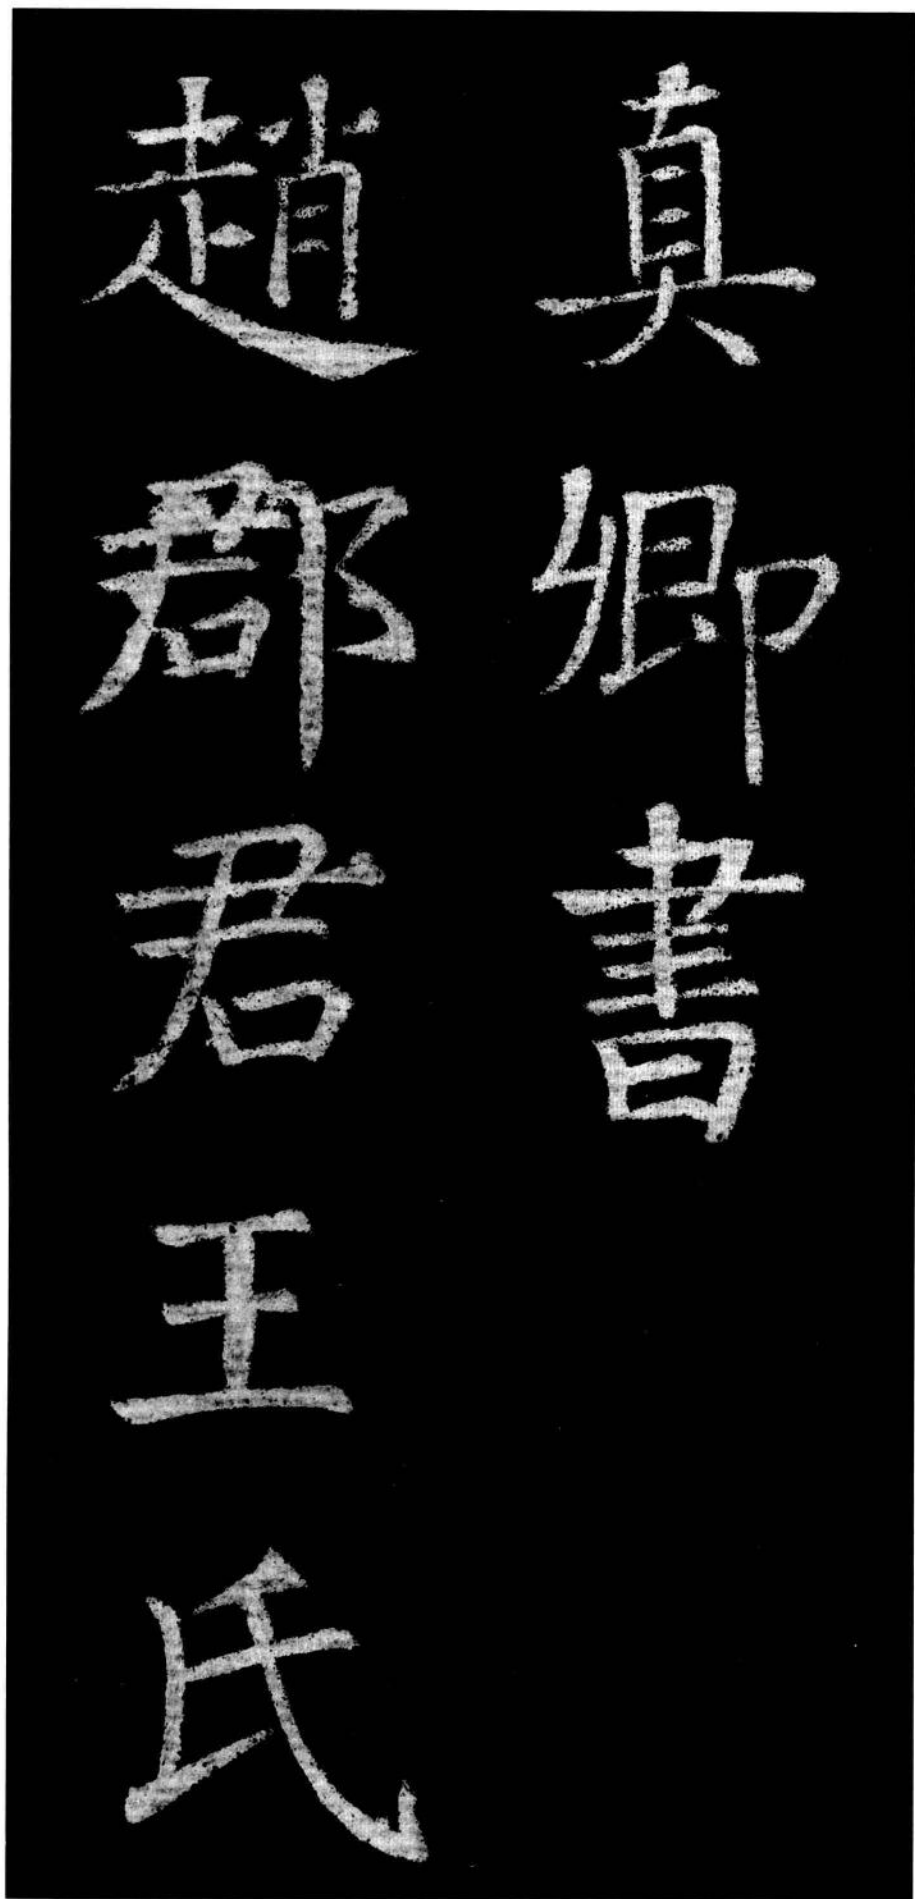 真卿書
趙郡君王氏